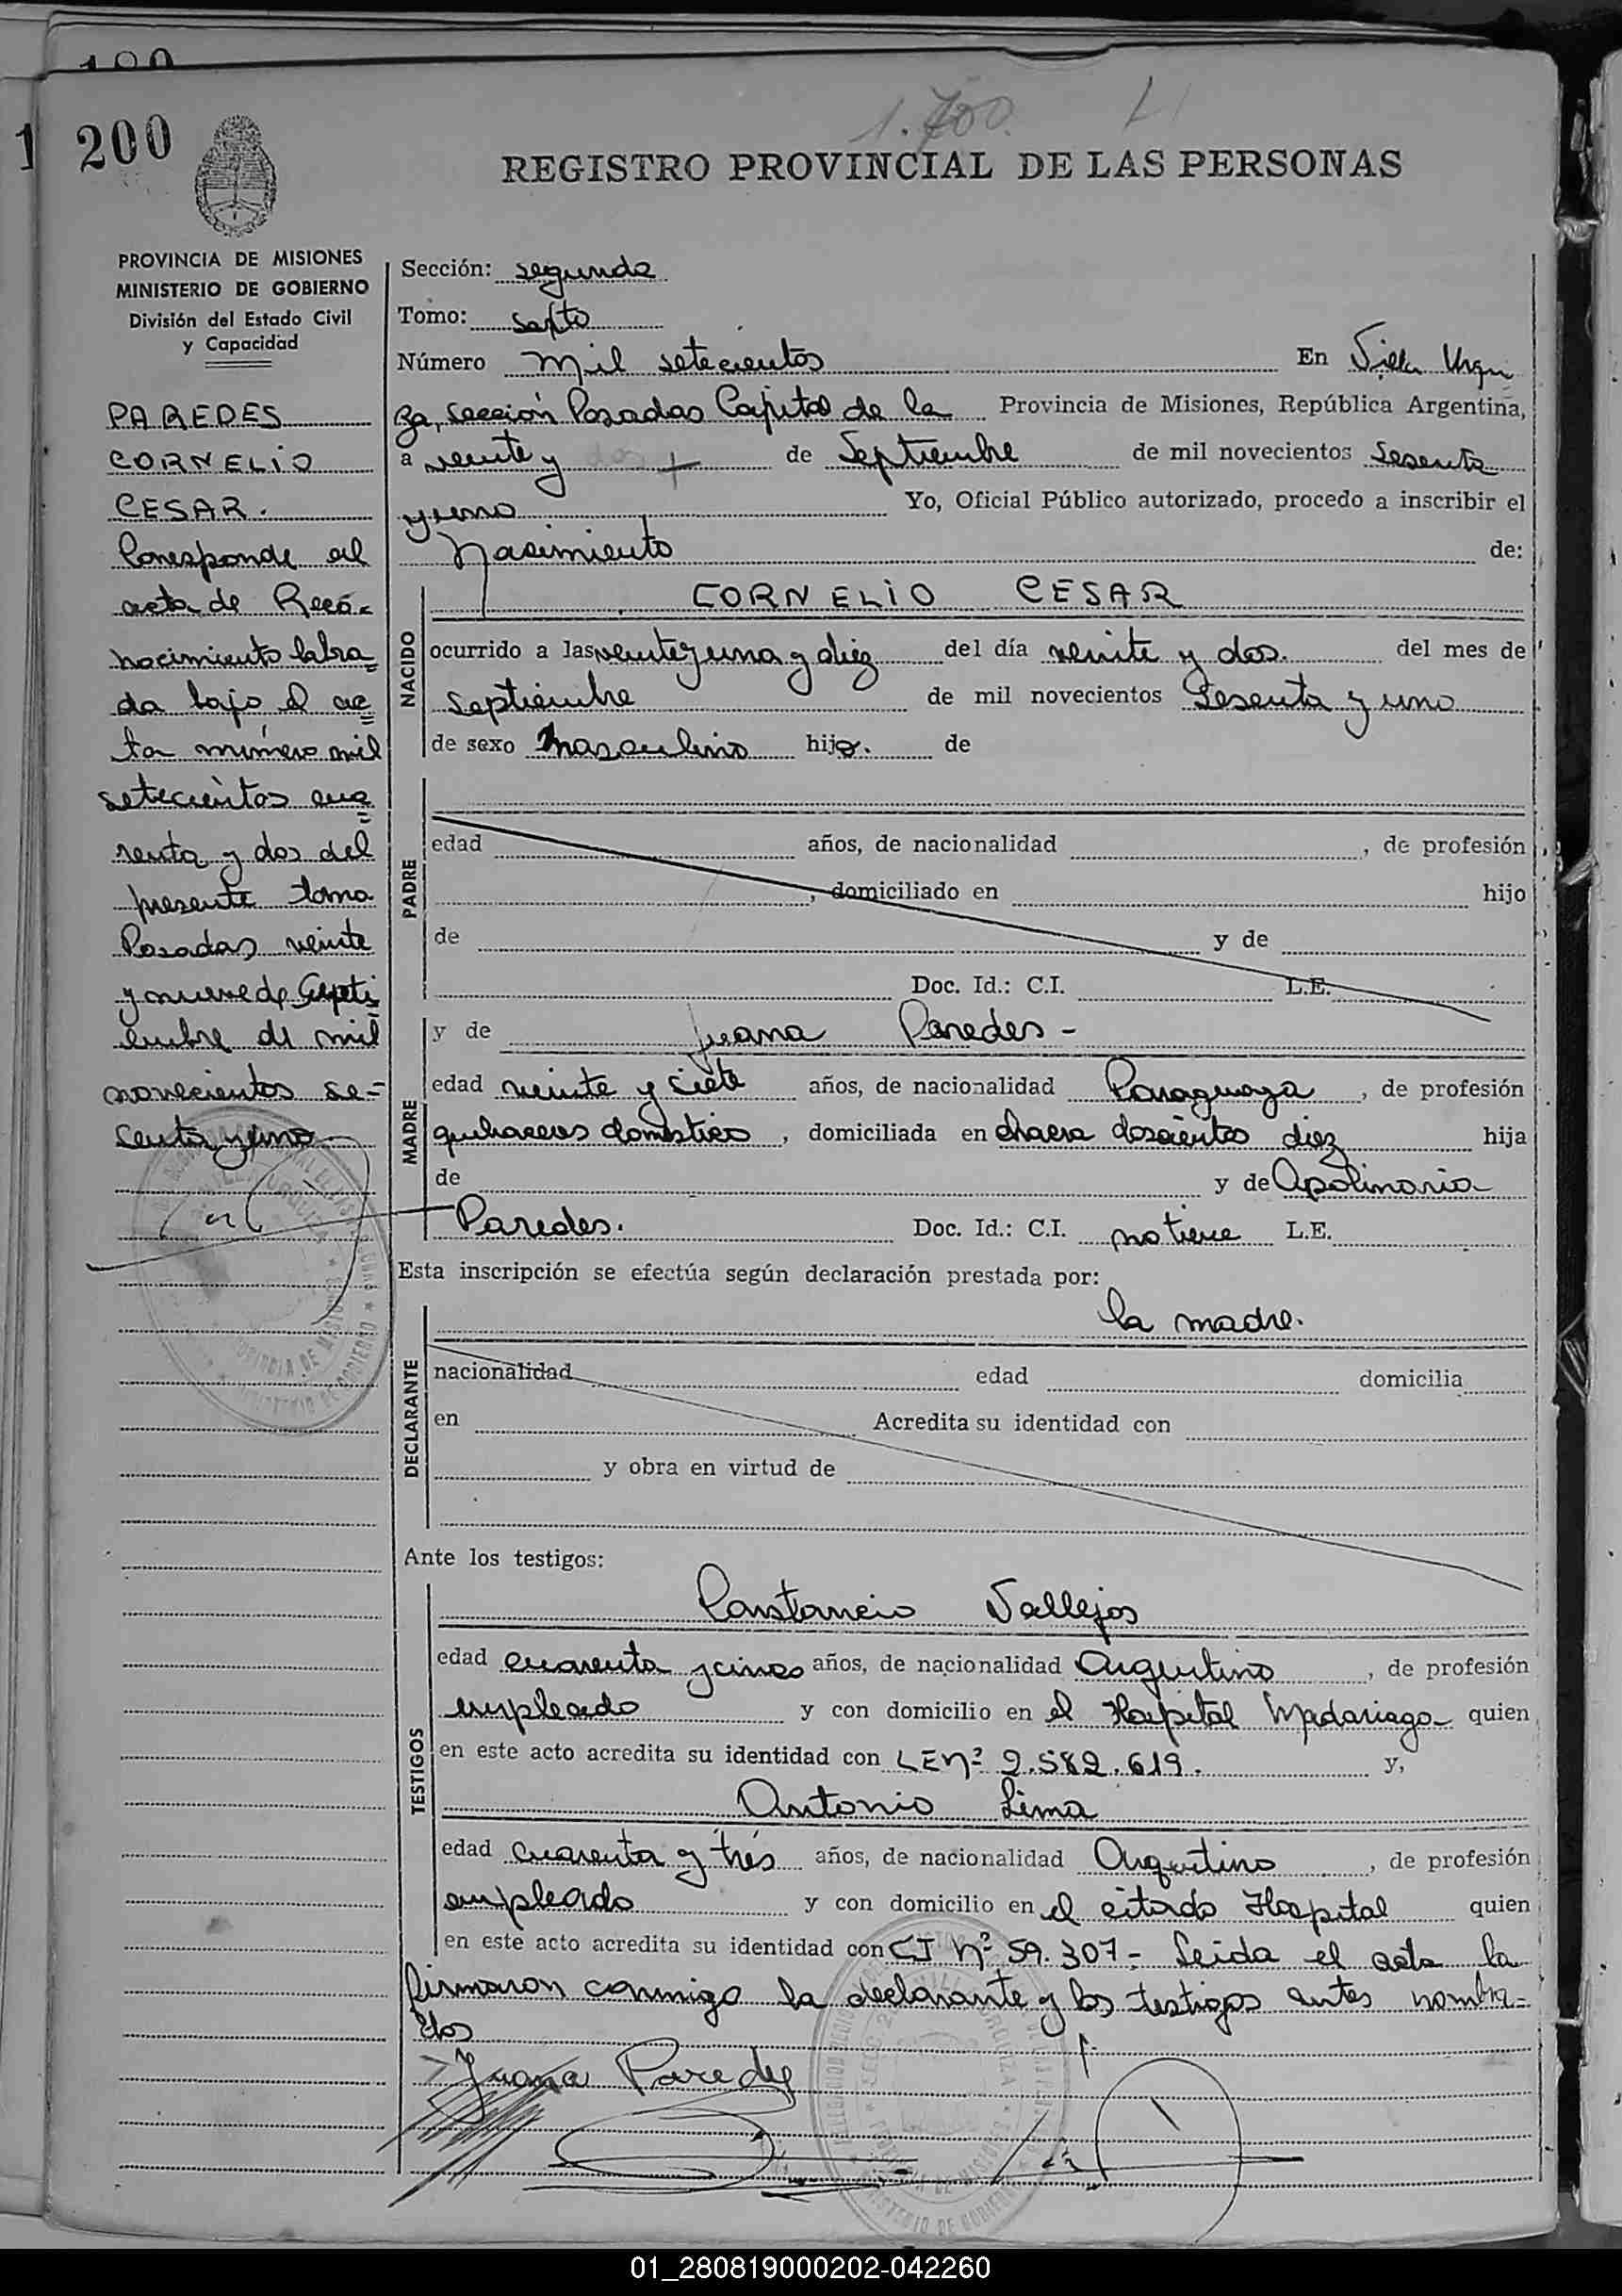 190
1.700. L
1 200
REGISTRO PROVINCIAL DE LAS PERSONAS
PROVINCIA DE MISIONES
MINISTERIO DE GOBIERNO
División del Estado Civil
y Capacidad
PAREDES
CORNELIO
CESAR.
Corresponde al
acta de Reco=
nocimiento labra=
da bajo el ac=
ta número mil
setecientos cua=
renta y dos del
presente tomo
Posadas veinte
y nueve de Septi
embre de mil
novecientos se-
senta y uno
Sección: segunda
Tomo: sexto
Número mil setecientos En Villa Urqui
za, sección Posadas Capital de la Provincia de Misiones, República Argentina,
a veinte y dos de Septiembre de mil novecientos sesenta
y uno Yo, Oficial Público autorizado, procedo a inscribir el
Nacimiento de:
NACIDO
CORNELIO CESAR
ocurrido a las veinte y una y diez del día veinte y dos. del mes de
septiembre de mil novecientos sesenta y uno
de sexo masculino hijo. de
PADRE
edad años, de nacionalidad , de profesión
, domiciliado en hijo
de y de
Doc. Id.: C.I. L.E.
MADRE
y de Juana Paredes -
edad veinte y siete años, de nacionalidad Paraguaya , de profesión
quehaceres domésticos , domiciliada en chacra doscientos diez hija
de y de Apolinaria
Paredes. Doc. Id.: C.I. no tiene L.E.
Esta inscripción se efectúa según declaración prestada por:
DECLARANTE
la madre.
nacionalidad edad domicilia
en Acredita su identidad con
y obra en virtud de
Ante los testigos:
TESTIGOS
Constancio Vallejos
edad cuarenta y cinco años, de nacionalidad Argentino , de profesión
empleado y con domicilio en el Hospital Madariaga quien
en este acto acredita su identidad con LE nº 2.582.619. y,
Antonio Lima
edad cuarenta y trés años, de nacionalidad Argentino , de profesión
empleado y con domicilio en el citado Hospital quien
en este acto acredita su identidad con CI Nº 59.307- Leida el acta la
firmaron conmigo la declarante y los testigos antes nombra=
dos
Juana Paredes
01_280819000202-042260